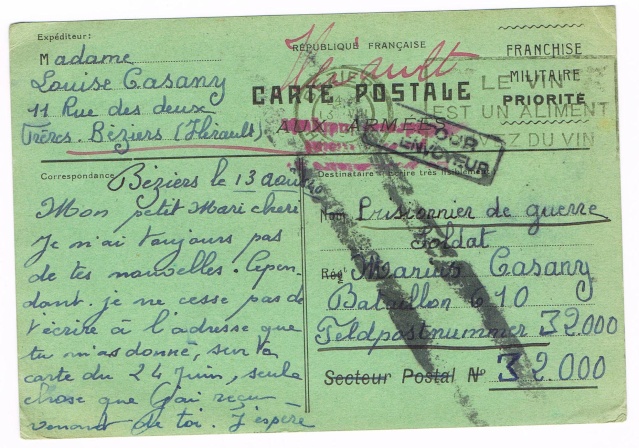 Expéditeur:
Madame
Louise Casany
11 Rue des deux
Frères. Béziers (Hérault)
RÉPUBLIQUE FRANÇAISE
Hérault
CARTE POSTALE
AUX ARMÉES
FRANCHISE
MILITAIRE
PRIORITÉ
LE VIN
EST UN ALIMENT
DU VIN
ENVOYEUR
Correspondance
Béziers le 13 août 40
Mon petit Mari cheri
Je n'ai toujours pas
de tes nouvelles. Cepen-
dant je ne cesse pas de
t'écrire à l'adresse que
tu m'as donné, sur ta
carte du 24 juin, seule
chose que j'ai reçu
venant de toi. J'espère
Destinataire à inscrire très lisiblement
Nom Prisonnier de guerre
Soldat
Rég^t Marius Casany
Bataillon 610
Feldpostnummer 32000
Secteur Postal N° 32.000